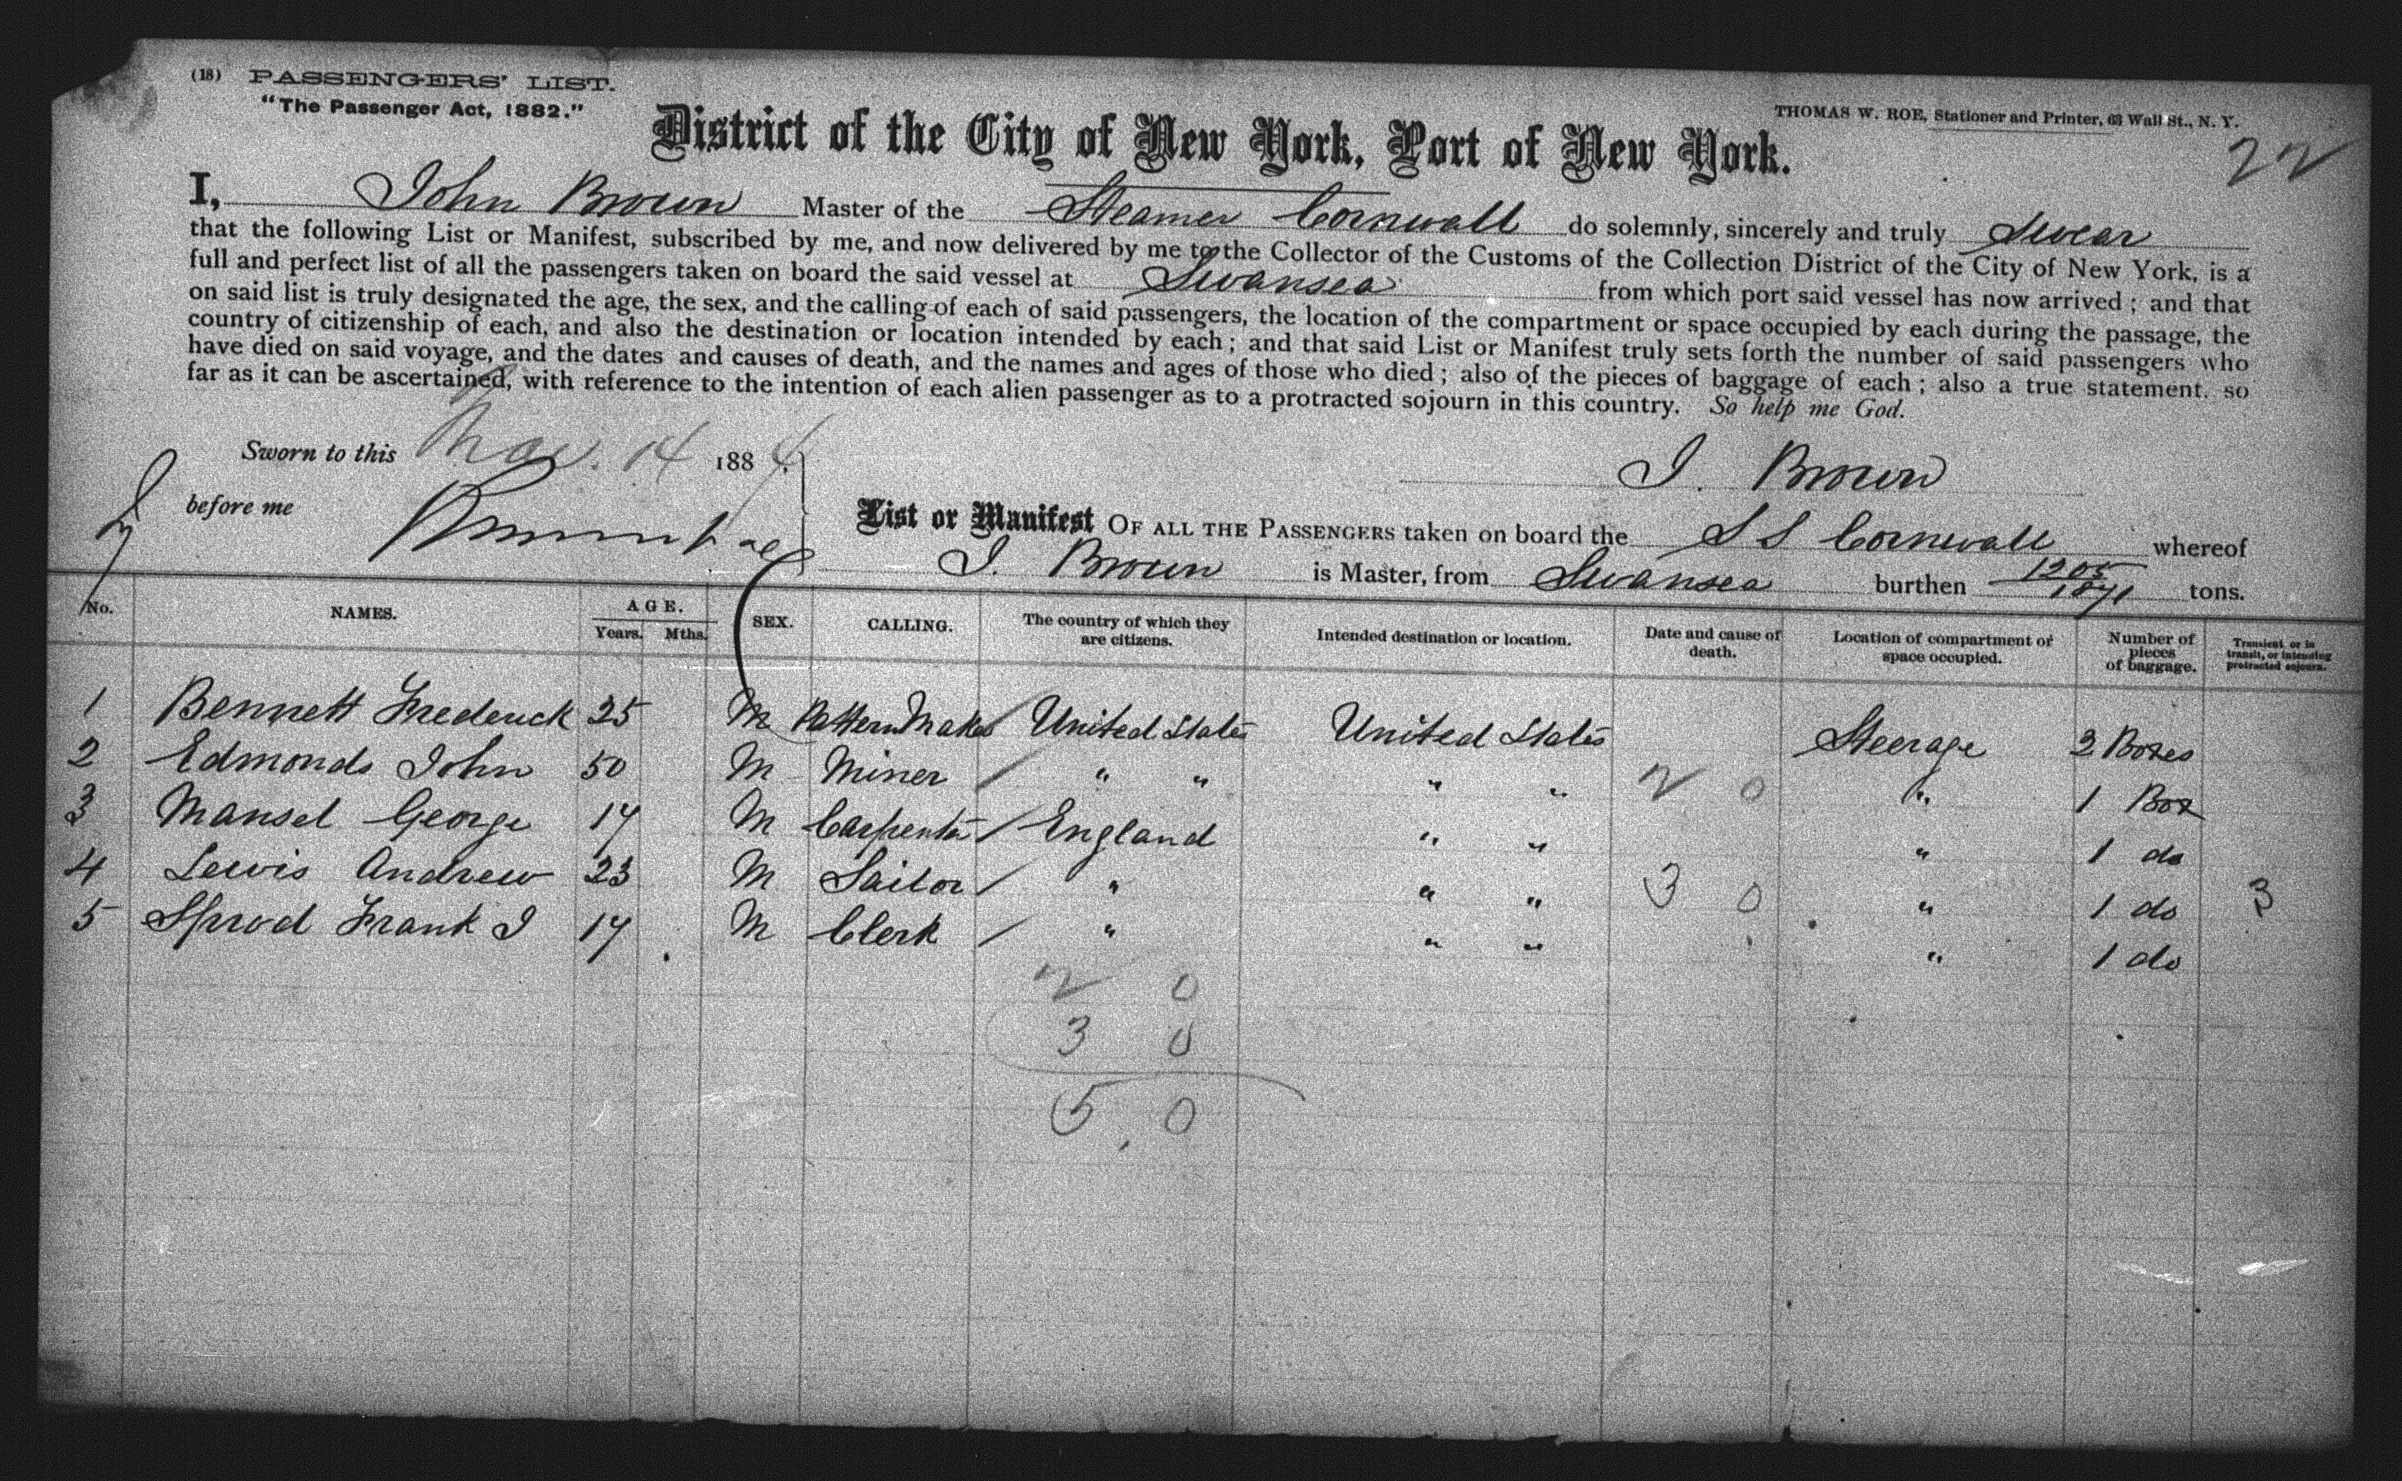 (18) PASSENGERS' LIST.
"The Passenger Act, 1882."
THOMAS W. ROE, Stationer and Printer, 63 Wall St., N. Y.
22
District of the City of New York, Port of New York.
I, John Brown Master of the Steamer Cornwall do solemnly, sincerely and truly Swear
that the following List or Manifest, subscribed by me, and now delivered by me to the Collector of the Customs of the Collection District of the City of New York, is a
full and perfect list of all the passengers taken on board the said vessel at Swansea from which port said vessel has now arrived; and that
on said list is truly designated the age, the sex, and the calling of each of said passengers, the location of the compartment or space occupied by each during the passage, the
country of citizenship of each, and also the destination or location intended by each; and that said List or Manifest truly sets forth the number of said passengers who
have died on said voyage, and the dates and causes of death, and the names and ages of those who died; also of the pieces of baggage of each; also a true statement, so
far as it can be ascertained, with reference to the intention of each alien passenger as to a protracted sojourn in this country. So help me God.
Sworn to this Nov. 14 1884
J. Brown
before me
List or Manifest OF ALL THE PASSENGERS taken on board the S S Cornwall whereof
J. Brown is Master, from Swansea burthen 1205 1871 tons.
No. NAMES. AGE. Years. Mths. SEX. CALLING. The country of which they are citizens. Intended destination or location. Date and cause of death. Location of compartment or space occupied. Number of pieces of baggage. Transient or in transit, or intending protracted sojourn.
1 Bennett Frederick 25 M Pattern Maker United States United States Steerage 2 Boxes
2 Edmonds John 50 M Miner " " " " 2 0 " 1 Box
3 Mansel George 17 M Carpenter England " " " 1 do
4 Lewis Andrew 23 M Sailor " " " 3 0 " 1 do 3
5 Sprod Frank J 17 M Clerk " " " " 1 do
2 0
3 0
5 0